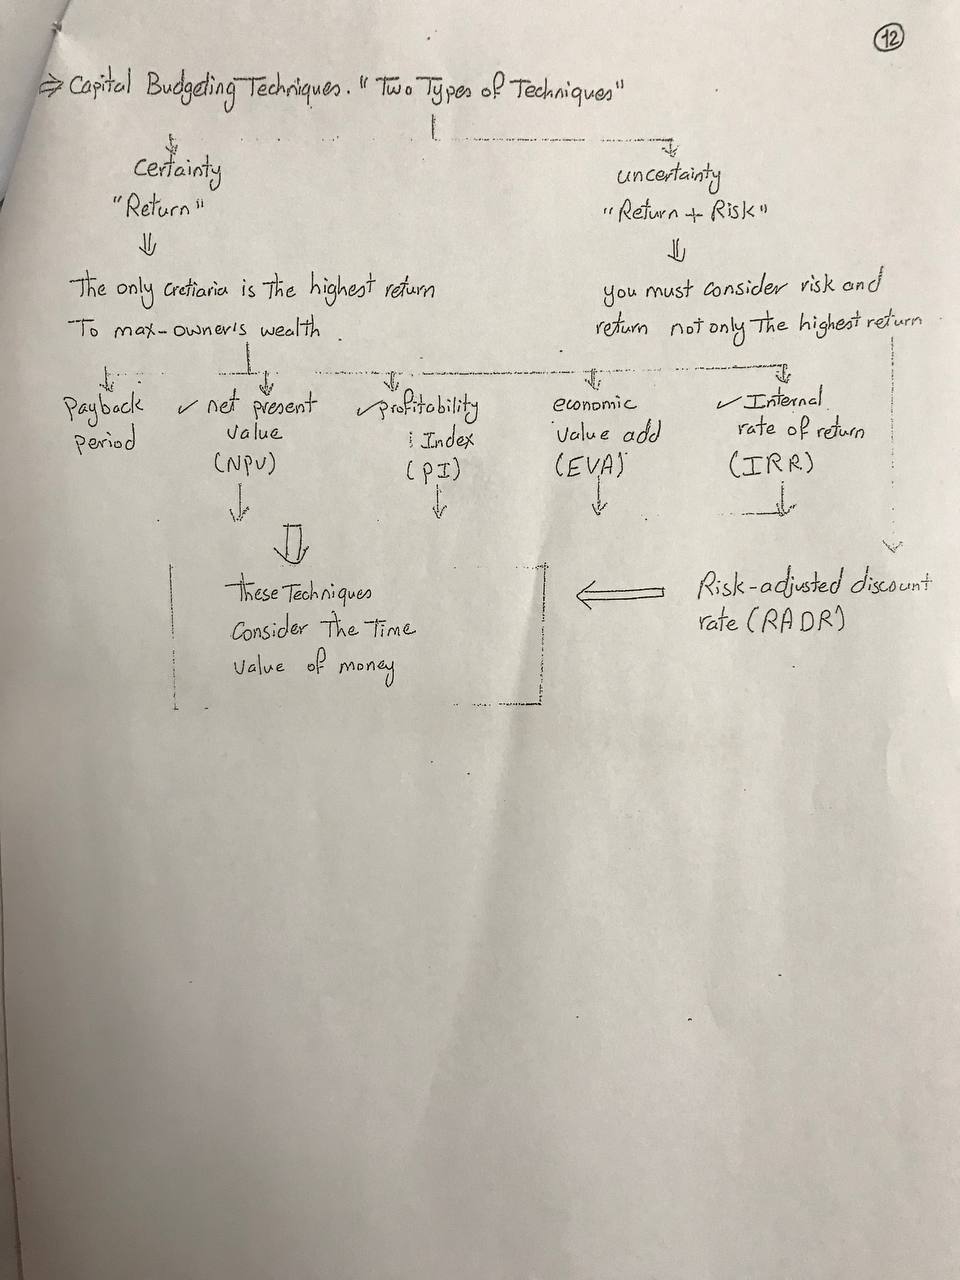 12
⇒ Capital Budgeting Techniques. "Two Types of Techniques"
Certainty
"Return"
The only cretiaria is The highest return
To max-owner's wealth
uncertainty
"Return + Risk"
you must consider risk and
return not only The highest return
Payback
Period
✓ net present
value
(NPV)
✓ profitability
Index
(PI)
economic
value add
(EVA)
✓ Internal
rate of return
(IRR)
These Techniques
Consider The Time
value of money
Risk-adjusted discount
rate (RADR)